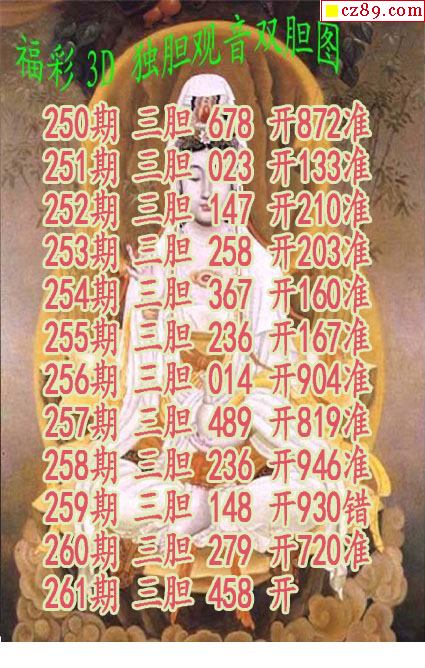 cz89.com
福彩 3D 独胆观音双胆图
250期 三胆 678 开872准
251期 三胆 023 开133准
252期 三胆 147 开210准
253期 三胆 258 开203准
254期 三胆 367 开160准
255期 三胆 236 开167准
256期 三胆 014 开904准
257期 三胆 489 开819准
258期 三胆 236 开946准
259期 三胆 148 开930错
260期 三胆 279 开720准
261期 三胆 458 开